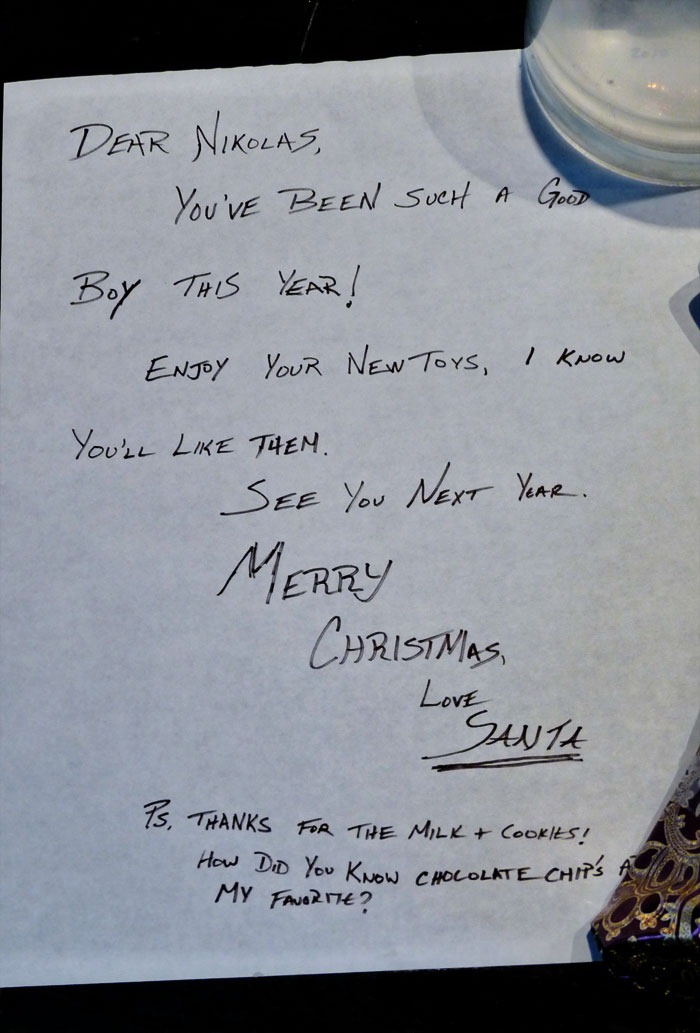 DEAR NIKOLAS,
YOU'VE BEEN SUCH A GOOD
BOY THIS YEAR!
ENJOY YOUR NEW TOYS, I KNOW
YOU'LL LIKE THEM.
SEE YOU NEXT YEAR.
MERRY
CHRISTMAS,
LOVE
SANTA
PS, THANKS FOR THE MILK + COOKIES!
HOW DID YOU KNOW CHOCOLATE CHIP'S
MY FAVORITE?